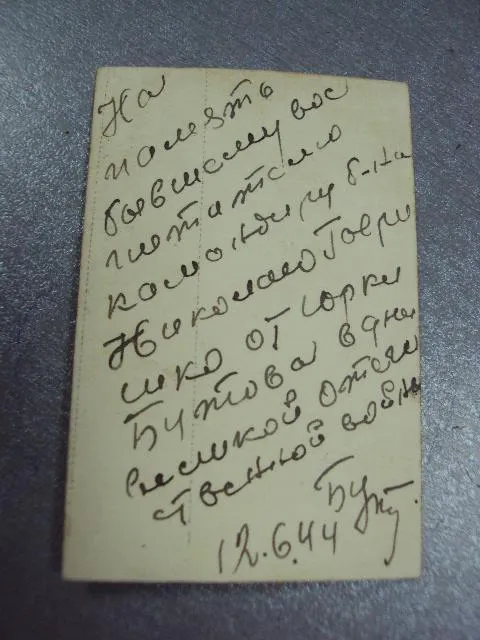 На
память
бывшему вос
питателю
командиру б-на
Николаю Гаври
шко от Юрки
Бутова в дни
великой отече
ственной войны
Бут
12.6.44